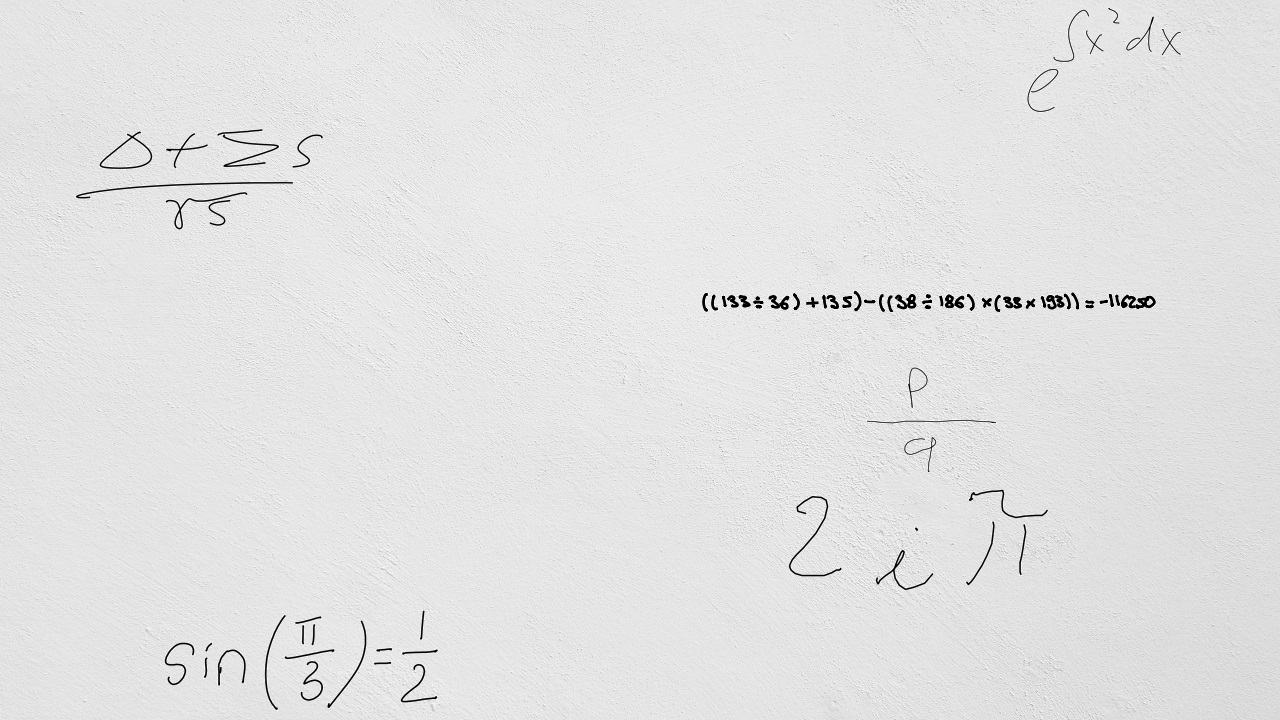 e^{∫x²dx}
Δ+Σs
γs
((133÷36)+135)-((38÷186)×(33×193))=-116250
p
q
2iπ
sin(π/3)=1/2